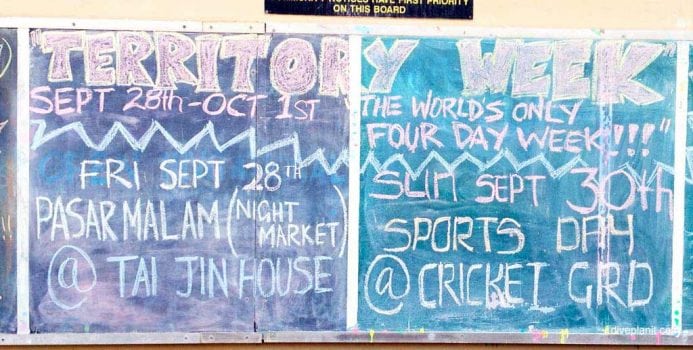 COMMUNITY NOTICES HAVE FIRST PRIORITY
ON THIS BOARD
"TERRITORY WEEK"
SEPT 28th - OCT 1ST
THE WORLD'S ONLY
FOUR DAY WEEK!!!"
FRI SEPT 28TH
PASAR MALAM (NIGHT MARKET)
@ TAI JIN HOUSE
SUN SEPT 30th
SPORTS DAY
@ CRICKET GRD